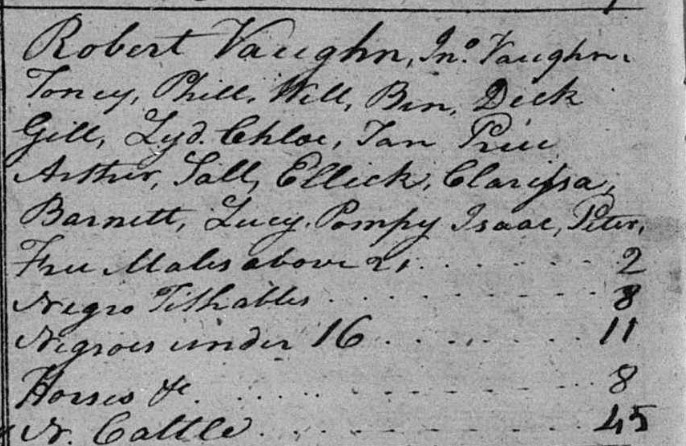 Robert Vaughn, Jno. Vaughn.
Toney, Phill, Will, Ben, Dick
Gill, Lyd. Chloe, Jan Price
Arthur, Sall, Ellick, Clarissa,
Barnett, Lucy. Pompy Isaac, Peter,
Free Males above 21 . . . . . . . 2
Negro Tithables . . . . . . . . . 8
Negroes under 16 . . . . . . . . 11
Horses &c. . . . . . . . . . . 8
N. Cattle . . . . . . . . . . . 45